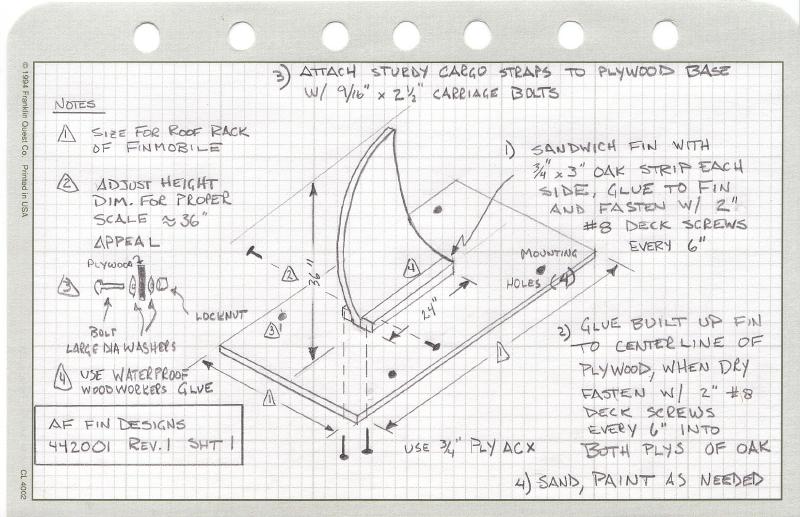 3) ATTACH STURDY CARGO STRAPS TO PLYWOOD BASE
W/ 9/16" x 2 1/2" CARRIAGE BOLTS
NOTES
1 SIZE FOR ROOF RACK
OF FINMOBILE
2 ADJUST HEIGHT
DIM. FOR PROPER
SCALE ≈ 36"
APPEAL
3
PLYWOOD
BOLT
LOCKNUT
LARGE DIA WASHERS
4 USE WATERPROOF
WOODWORKERS GLUE
AF FIN DESIGNS
442001 REV. 1 SHT 1
1) SANDWICH FIN WITH
3/4" x 3" OAK STRIP EACH
SIDE, GLUE TO FIN
AND FASTEN W/ 2"
#8 DECK SCREWS
EVERY 6"
MOUNTING
HOLES (4)
36"
24"
2
4
3
1
1
2) GLUE BUILT UP FIN
TO CENTERLINE OF
PLYWOOD, WHEN DRY
FASTEN W/ 2" #8
DECK SCREWS
EVERY 6" INTO
BOTH PLYS OF OAK
USE 3/4" PLY ACX
4) SAND, PAINT AS NEEDED
© 1994 Franklin Quest Co. Printed in USA
CL 4002